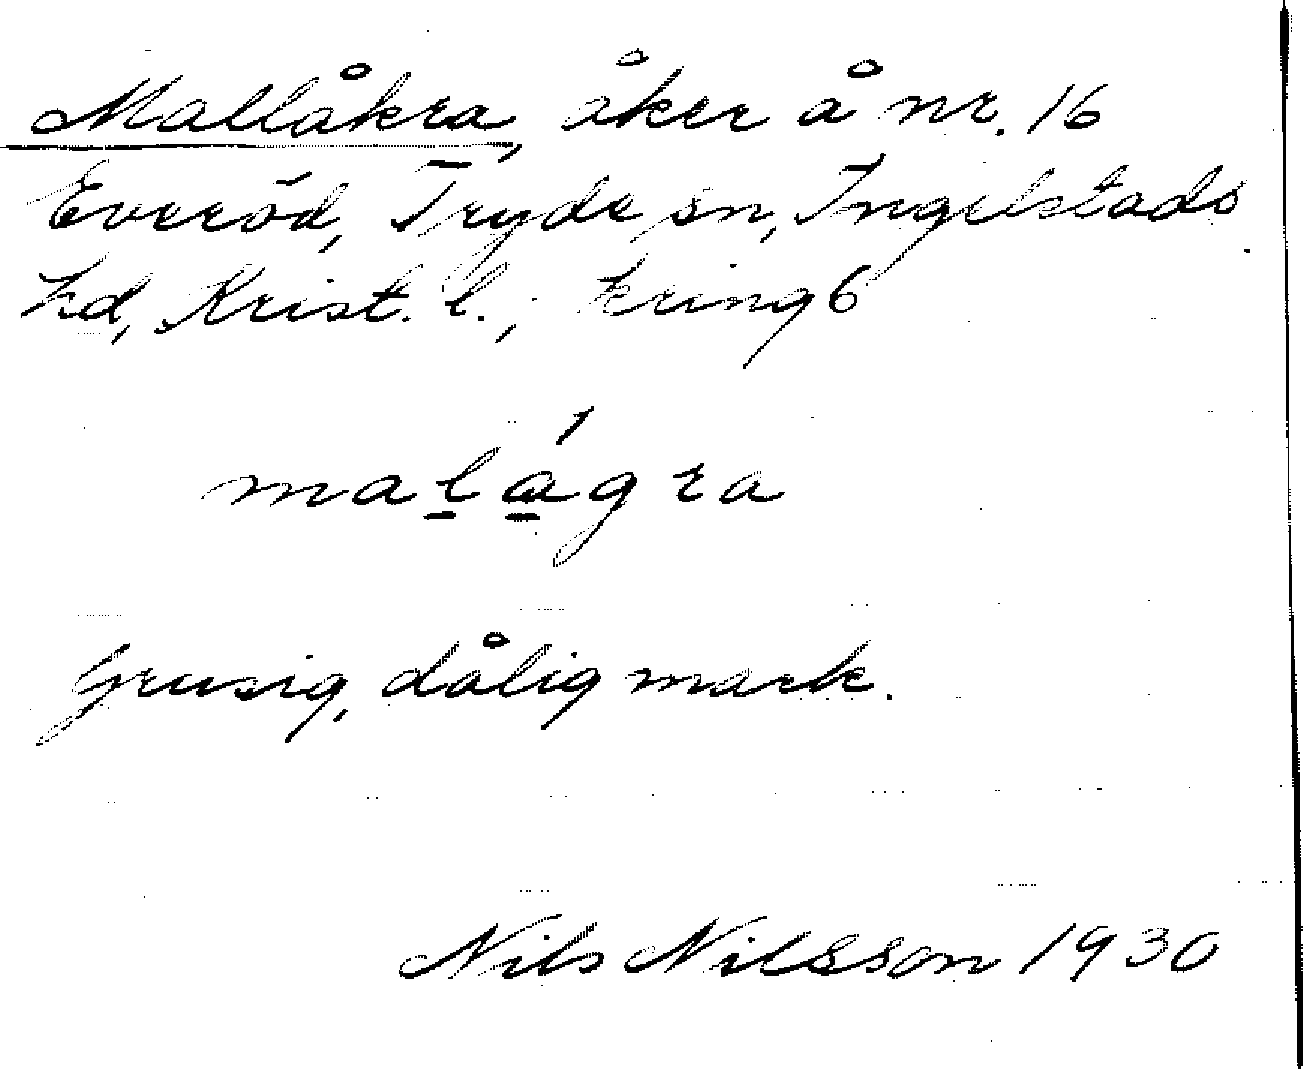 Mallåkra, åker å nr. 16
Everöd, Tryde sn, Ingelstads
hd, Krist. l., kring 6
malágra
Grusig, dålig mark.
Nils Nilsson 1930